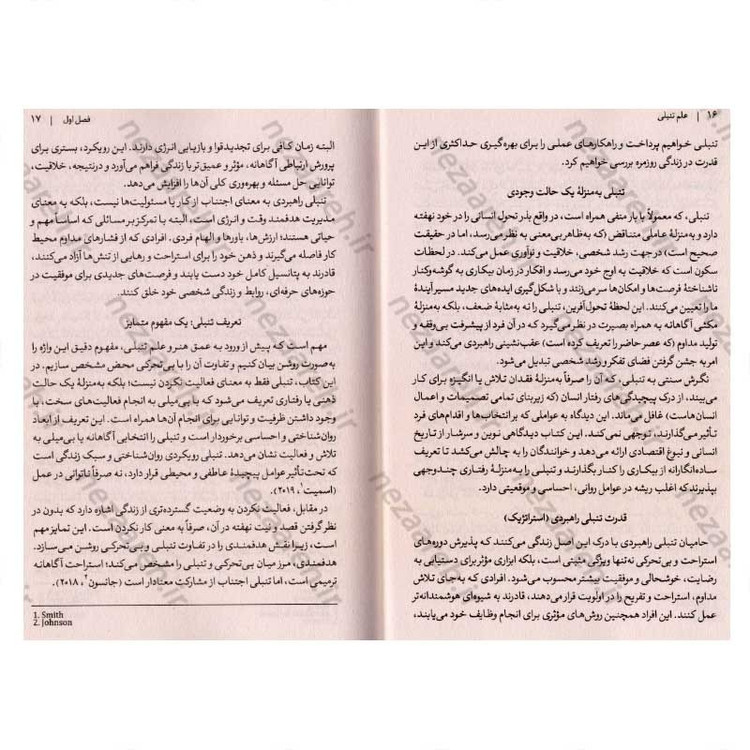 ۱۶ | علم تنبلی
تنبلی خواهیم پرداخت و راهکارهای عملی را برای بهره‌گیری حداکثری از این
قدرت در زندگی روزمره بررسی خواهیم کرد.
تنبلی به‌منزلهٔ یک حالت وجودی
تنبلی، که معمولاً با بار منفی همراه است، در واقع بذر تحول انسانی را در خود نهفته
دارد و به‌منزلهٔ عاملی متناقض (که به‌ظاهر بی‌معنی به نظر می‌رسد، اما در حقیقت
صحیح است) در جهت رشد شخصی، خلاقیت و نوآوری عمل می‌کند. در لحظات
سکون است که خلاقیت به اوج خود می‌رسد و افکار در زمان بیکاری به گوشه‌وکنار
ناشناختهٔ فرصت‌ها و امکان‌ها سر می‌زنند و با شکل‌گیری ایده‌های جدید مسیر آیندهٔ
ما را تعیین می‌کنند. این لحظهٔ تحول‌آفرین، تنبلی را نه به‌مثابهٔ ضعف، بلکه به‌منزلهٔ
مکثی آگاهانه به همراه بصیرت در نظر می‌گیرد که در آن فرد از پیشرفت بی‌وقفه و
تولید مداوم (که عصر حاضر را تعریف کرده است) عقب‌نشینی راهبردی می‌کند و این
امر به جشن گرفتن فضای تفکر و رشد شخصی تبدیل می‌شود.
نگرش سنتی به تنبلی، که آن را صرفاً به‌منزلهٔ فقدان تلاش یا انگیزه برای کار
می‌بیند، از درک پیچیدگی‌های رفتار انسان (که زیربنای تمامی تصمیمات و اعمال
انسان‌هاست) غافل می‌ماند. این دیدگاه به عواملی که بر انتخاب‌ها و اقدام‌های فرد
تأثیر می‌گذارند، توجهی نمی‌کند. این کتاب دیدگاهی نوین و سرشار از تاریخ
انسانی و نبوغ اقتصادی ارائه می‌دهد و خوانندگان را به چالش می‌کشد تا تعریف
ساده‌انگارانه از بیکاری را کنار بگذارند و تنبلی را به‌منزلهٔ رفتاری چندوجهی
بپذیرند که اغلب ریشه در عوامل روانی، احساسی و موقعیتی دارد.
قدرت تنبلی راهبردی (استراتژیک)
حامیان تنبلی راهبردی با درک این اصل زندگی می‌کنند که پذیرش دوره‌های
استراحت و بی‌تحرکی نه‌تنها ویژگی مثبتی است، بلکه ابزاری مؤثر برای دستیابی به
رضایت، خوشحالی و موفقیت بیشتر محسوب می‌شود. افرادی که به‌جای تلاش
مداوم، استراحت و تفریح را در اولویت قرار می‌دهند، قادرند به شیوه‌ای هوشمندانه‌تر
عمل کنند. این افراد همچنین روش‌های مؤثری برای انجام وظایف خود می‌یابند،
فصل اول | ۱۷
البته زمان کافی برای تجدیدقوا و بازیابی انرژی دارند. این رویکرد، بستری برای
پرورش ارتباطی آگاهانه، مؤثر و عمیق‌تر با زندگی فراهم می‌آورد و درنتیجه، خلاقیت،
توانایی حل مسئله و بهره‌وری کلی آن‌ها را افزایش می‌دهد.
تنبلی راهبردی به معنای اجتناب از کار یا مسئولیت‌ها نیست، بلکه به معنای
مدیریت هدفمند وقت و انرژی است، البته با تمرکز بر مسائلی که اساساً مهم و
حیاتی هستند؛ ارزش‌ها، باورها و الهام فردی. افرادی که از فشارهای مداوم محیط
کار فاصله می‌گیرند و ذهن خود را برای استراحت و رهایی از تنش‌ها آزاد می‌کنند،
قادرند به پتانسیل کامل خود دست یابند و فرصت‌های جدیدی برای موفقیت در
حوزه‌های حرفه‌ای، روابط و زندگی شخصی خود خلق کنند.
تعریف تنبلی: یک مفهوم متمایز
مهم است که پیش از ورود به عمق هنر و علم تنبلی، مفهوم دقیق این واژه را
به‌صورت روشن بیان کنیم و تفاوت آن را با بی‌تحرکی محض مشخص سازیم. در
این کتاب، تنبلی فقط به معنای فعالیت نکردن نیست؛ بلکه به‌منزلهٔ یک حالت
ذهنی یا رفتاری تعریف می‌شود که با بی‌میلی به انجام فعالیت‌های سخت، با
وجود داشتن ظرفیت و توانایی برای انجام آن‌ها همراه است. این تعریف از ابعاد
روان‌شناختی و احساسی برخوردار است و تنبلی را انتخابی آگاهانه یا بی‌میلی به
تلاش و فعالیت نشان می‌دهد. تنبلی رویکردی روان‌شناختی و سبک زندگی است
که تحت‌تأثیر عوامل پیچیدهٔ عاطفی و محیطی قرار دارد، نه صرفاً ناتوانی در عمل
(اسمیت۱، ۲۰۱۹).
در مقابل، فعالیت نکردن به وضعیت گسترده‌تری از زندگی اشاره دارد که بدون در
نظر گرفتن قصد و نیت نهفته در آن، صرفاً به معنی کار نکردن است. این تمایز مهم
است، زیرا نقش هدفمندی را در تفاوت تنبلی و بی‌تحرکی روشن می‌سازد.
هدفمندی، مرز میان بی‌تحرکی و تنبلی را مشخص می‌کند؛ استراحت آگاهانه
ترمیمی است، اما تنبلی اجتناب از مشارکت معنادار است (جانسون۲، ۲۰۱۸).
1. Smith
2. Johnson
nezaareh.ir